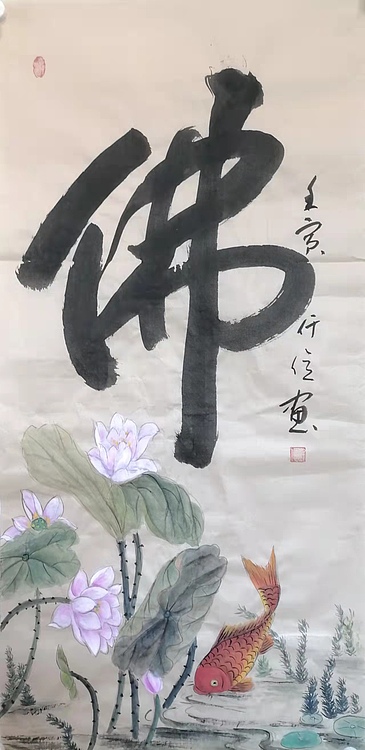 佛
壬寅仟信画